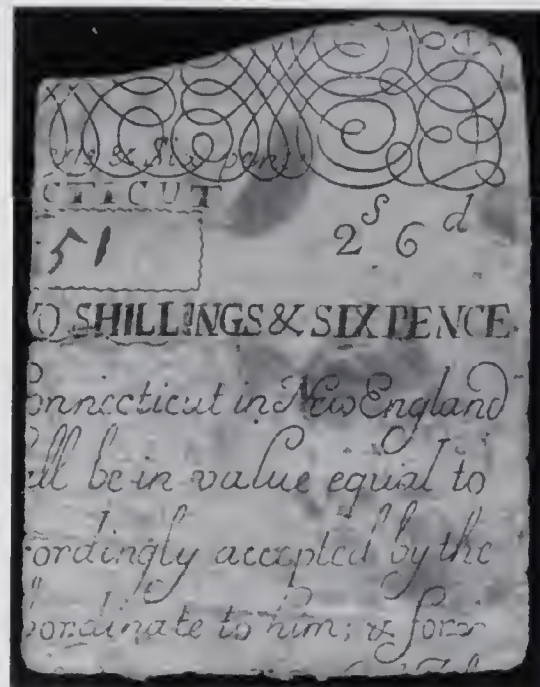 & Six penc
CTICUT
51
2 S 6 d
O SHILLINGS & SIX PENCE
onnecticut in New England
all be in value equal to
cordingly accepted by the
bordinate to him; & for